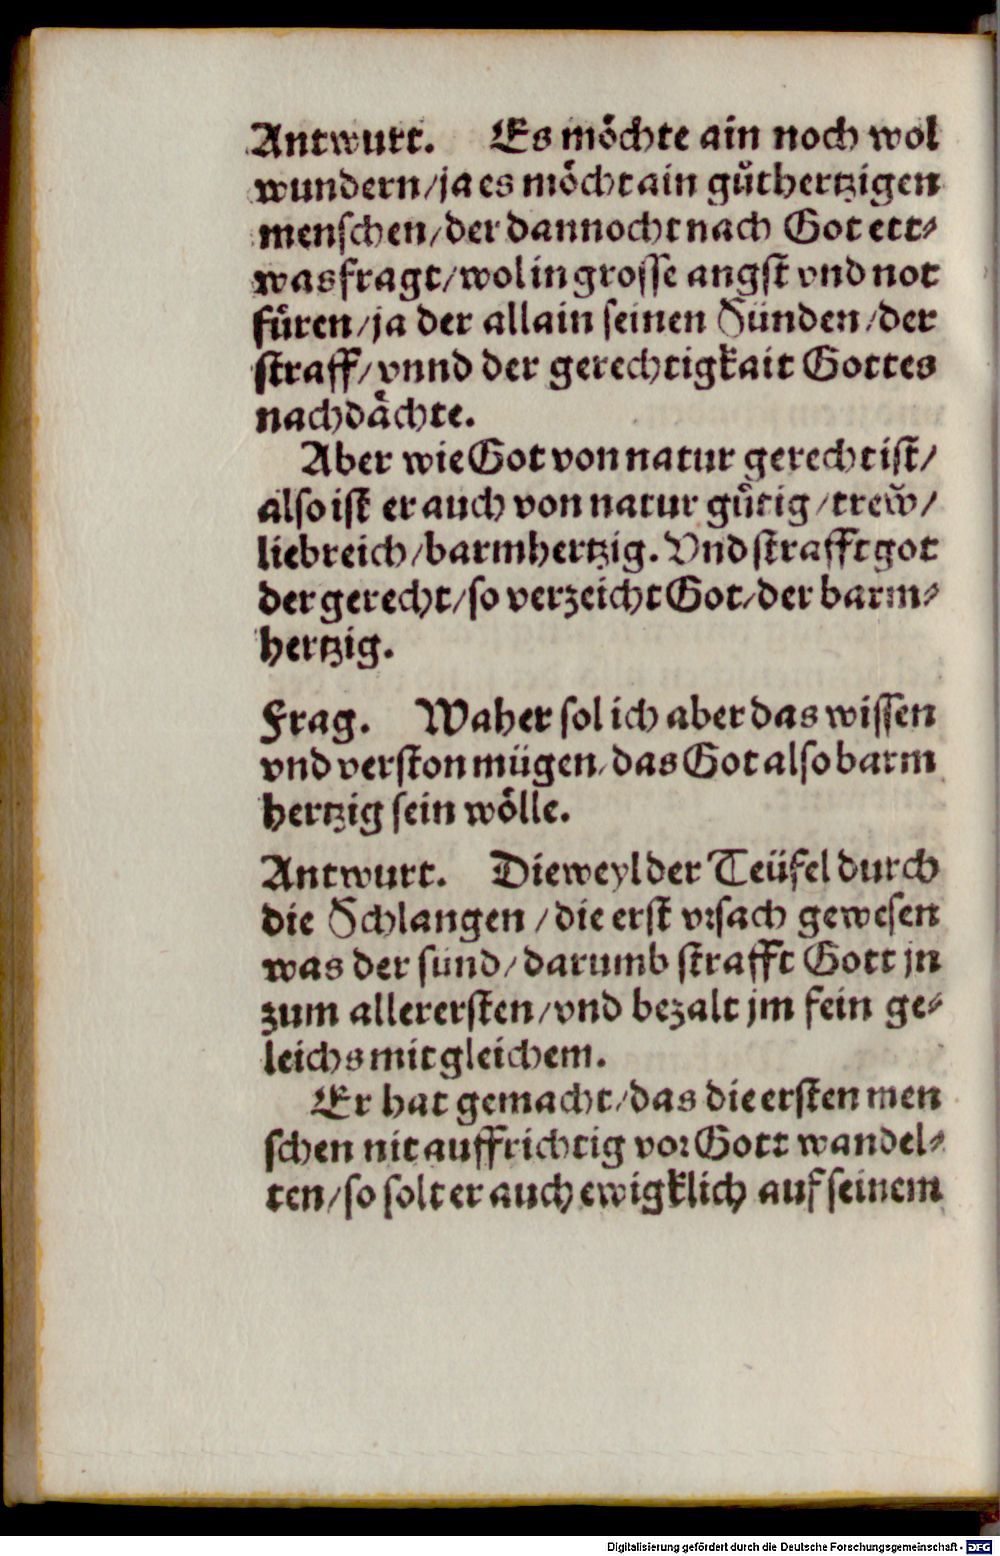 Antwurt. Es möchte ain noch wol
wundern/ja es möcht ain gůthertzigen
menschen/der dannocht nach Got ett⸗
was fragt/wol in grosse angst vnd not
füren/ja der allain seinen Sünden/der
straff/vnnd der gerechtigkait Gottes
nachdächte.
Aber wie Got von natur gerecht ist/
also ist er auch von natur gütig/trew̆/
liebreich/barmhertzig. Vnd strafft got
der gerecht/so verzeicht Got/der barm⸗
hertzig.
Frag. Waher sol ich aber das wissen
vnd verston mügen/das Got also barm
hertzig sein wölle.
Antwurt. Dieweyl der Teüfel durch
die Schlangen/die erst vrsach gewesen
was der sünd/darumb strafft Gott jn
zum allerersten/vnd bezalt jm fein ge⸗
leichs mit gleichem.
Er hat gemacht/das die ersten men
schen nit auffrichtig vor Gott wandel⸗
ten/so solt er auch ewigklich auf seinem
Digitalisierung gefördert durch die Deutsche Forschungsgemeinschaft - DFG